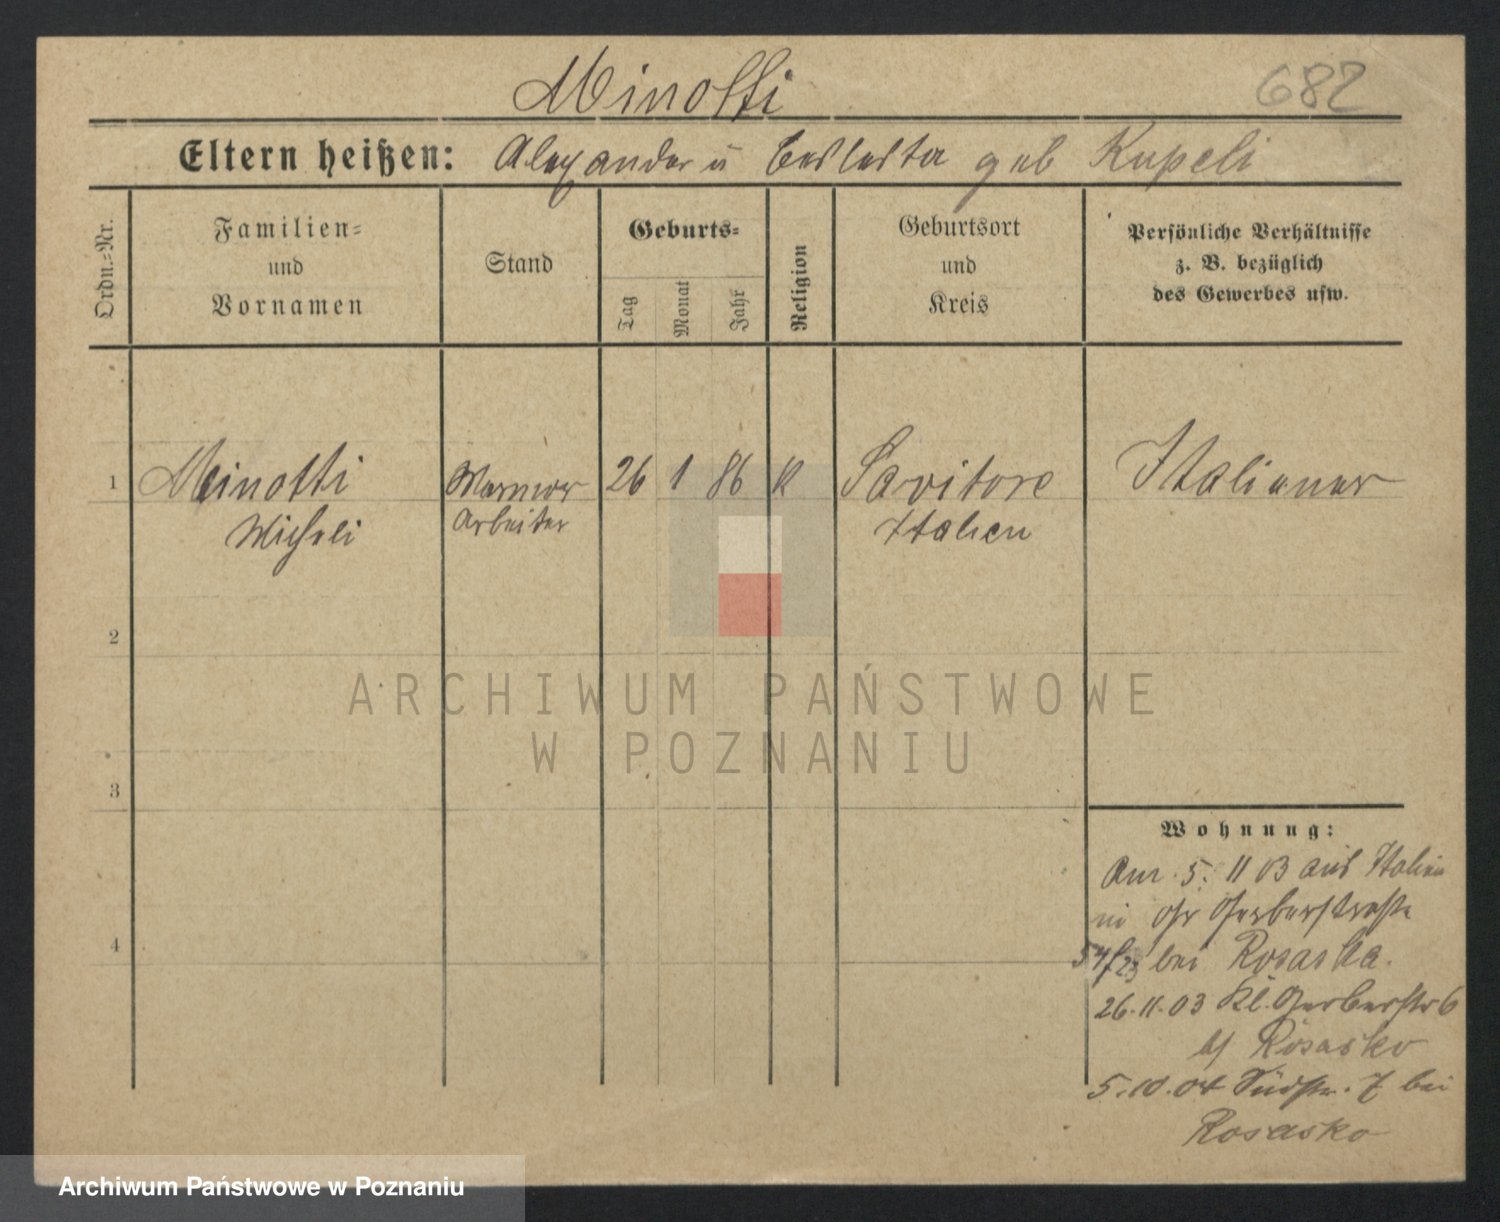 Minotti
682
Eltern heißen: Alexander u Celesta geb Kupeli
Ordn.=Nr.
Familien=
und
Vornamen
Stand
Geburts=
Tag
Monat
Jahr
Religion
Geburtsort
und
Kreis
Persönliche Verhältnisse
z. B. bezüglich
des Gewerbes usw.
1
Minotti
Micheli
Marmor
Arbeiter
26
1
86
K
Savitore
Italien
Italiener
2
3
4
Wohnung:
Am 5. 11 03 aus Italien
Gr Gerberstraße
bei Rosaska.
26.11.03 Kl. Gerberstr 6
b/ Rosasko
5.10.04 Südstr. 7 bei
Rosasko
ARCHIWUM PAŃSTWOWE
W POZNANIU
Archiwum Państwowe w Poznaniu